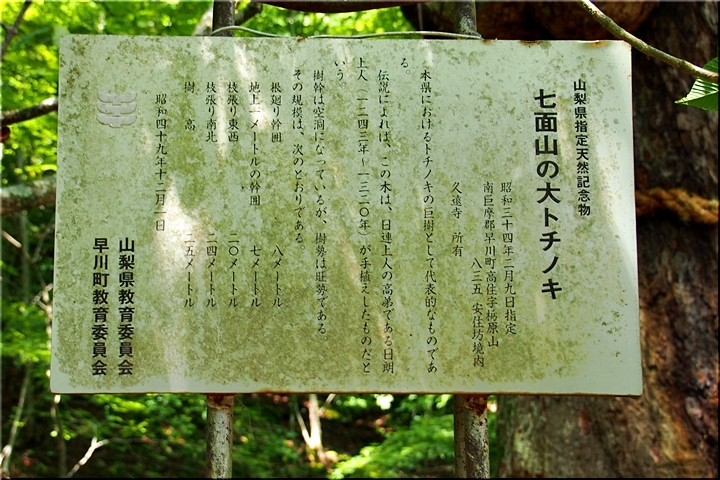 山梨県指定天然記念物
七面山の大トチノキ
昭和三十四年二月九日指定
南巨摩郡早川町高住字栃原山
八三五 安住坊境内
久遠寺 所有
本県におけるトチノキの巨樹として代表的なものであ
る。
伝説によれば、この木は、日連上人の高弟である日朗
上人(一二四三年~一三二〇年)が手植えしたものだと
いう。
樹幹は空洞になっているが、樹勢は旺勢である
その規模は、次のとおりである。
根廻り幹囲 八メートル
地上一メートルの幹囲 七メートル
枝張り東西 二〇メートル
枝張り南北 二四メートル
樹 高 二五メートル
昭和四十九年十二月一日
山梨県教育委員会
早川町教育委員会